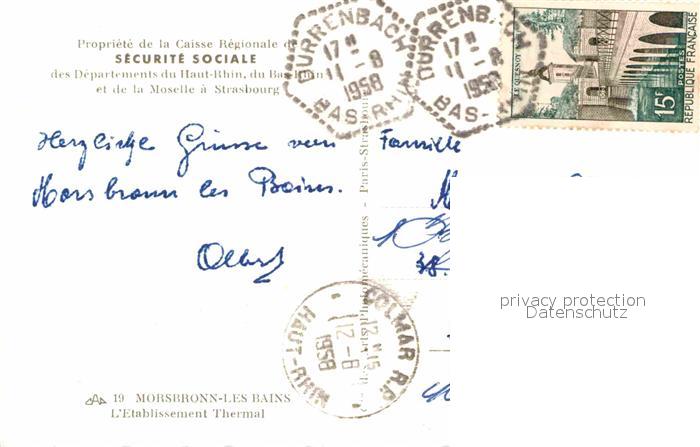 Propriété de la Caisse Régionale de
SÉCURITÉ SOCIALE
des Départements du Haut-Rhin, du Bas-Rhin
et de la Moselle à Strasbourg
DURRENBACH
17H
11-8
1958
BAS-RHIN
DURRENBACH
17H
11-8
1958
BAS-
LE QUESNOY
15F
POSTES
REPUBLIQUE FRANÇAISE
Herzliche Grüsse von
Morsbronn les Bains.
Albert
Famille
38.
Arts Photomécaniques - Paris-Strasbourg
COLMAR R.P.
12H15
12-8
1958
HAUT-RHIN
privacy protection
Datenschutz
19 MORSBRONN-LES BAINS
L'Etablissement Thermal